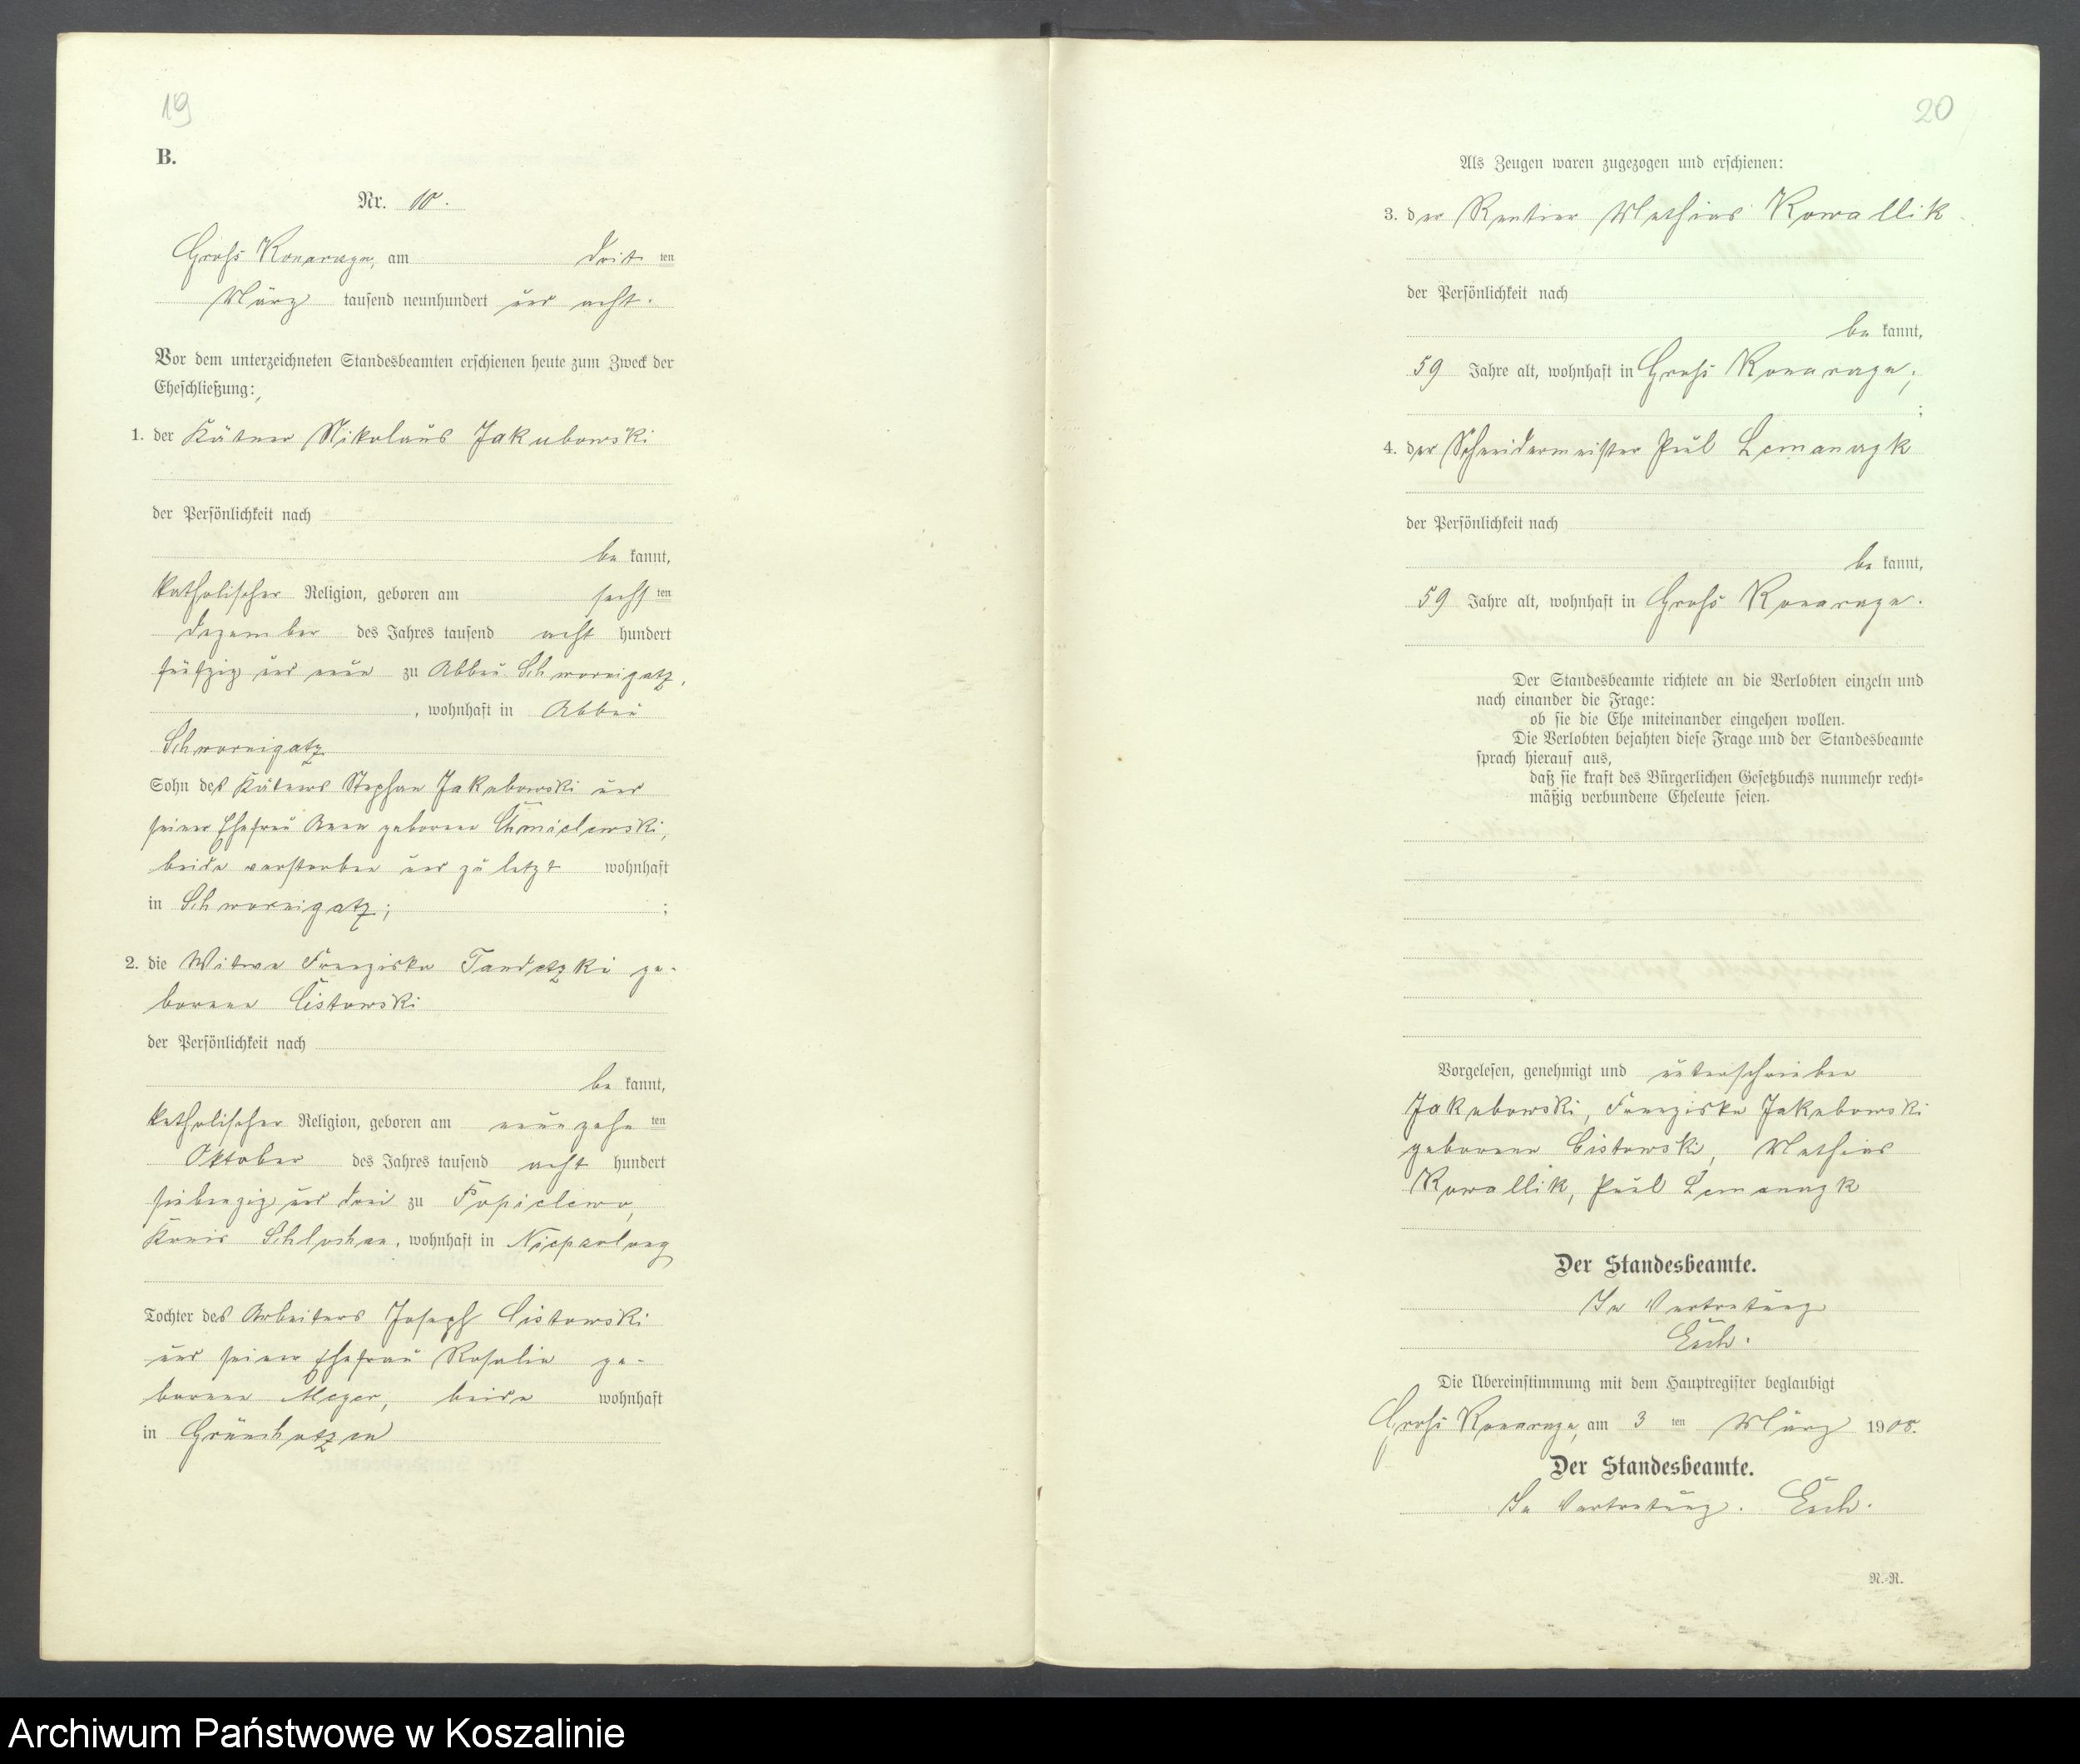 19
B.
Nr. 10.
Groß Konarzyn, am dritten
März tausend neunhundert und acht.
Vor dem unterzeichneten Standesbeamten erschienen heute zum Zweck der
Eheschließung:
1. der Kätner Nikolaus Jakubowski
der Persönlichkeit nach
bekannt,
katholischer Religion, geboren am sechsten
Dezember des Jahres tausend acht hundert
fünfzig und neun zu Abbau Schwornigatz,
, wohnhaft in Abbau
Schwornigatz
Sohn des Kätners Stephan Jakubowski und
seiner Ehefrau Anna geborene Chmielewski,
beide verstorben und zuletzt wohnhaft
in Schwornigatz; ;
2. die Witwe Franziska Tandetzki ge-
borene Cistowski
der Persönlichkeit nach
bekannt,
katholischer Religion, geboren am neunzehnten
Oktober des Jahres tausend acht hundert
siebenzig und drei zu Popielewo,
Kreis Schlochau, wohnhaft in
Tochter des Arbeiters Joseph Cistowski
und seiner Ehefrau Rosalie ge-
borene Meger, beide wohnhaft
in Grünchotzen
20
Als Zeugen waren zugezogen und erschienen:
3. der Rentier Mathias Kowallik
der Persönlichkeit nach
bekannt,
59 Jahre alt, wohnhaft in Groß Konarzyn;
;
4. der Schneidermeister Paul Lemanczyk
der Persönlichkeit nach
bekannt,
59 Jahre alt, wohnhaft in Groß Konarzyn.
Der Standesbeamte richtete an die Verlobten einzeln und
nach einander die Frage:
ob sie die Ehe miteinander eingehen wollen.
Die Verlobten bejahten diese Frage und der Standesbeamte
sprach hierauf aus,
daß sie kraft des Bürgerlichen Gesetzbuchs nunmehr recht-
mäßig verbundene Eheleute seien.
Vorgelesen, genehmigt und unterschrieben
Jakubowski, Franziska Jakubowski
geborene Cistowski, Mathias
Kowallik, Paul Lemanczyk
Der Standesbeamte.
In Vertretung
Die Übereinstimmung mit dem Hauptregister beglaubigt
Groß Konarzyn, am 3ten März 1908.
Der Standesbeamte.
In Vertretung.
N.-R.
Archiwum Państwowe w Koszalinie